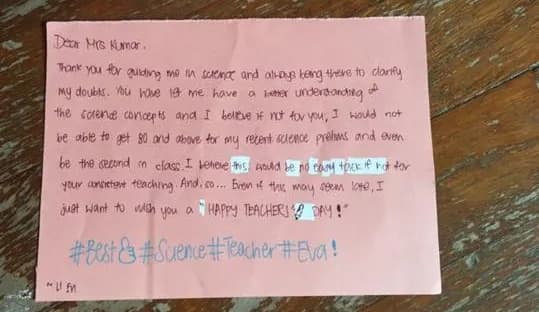 Dear Mrs Kumar,
Thank you for guiding me in science and always being there to clarify
my doubts. You have let me have a better understanding of
the science concepts and I believe if not for you, I would not
be able to get 80 and above for my recent science prelims and even
be the second in class. I believe this would be no easy task if not for
your consistent teaching. And, so... Even if this may seem late, I
just want to wish you a "HAPPY TEACHERS' DAY!"
#Best #Science #Teacher #Eva!
~ Li En